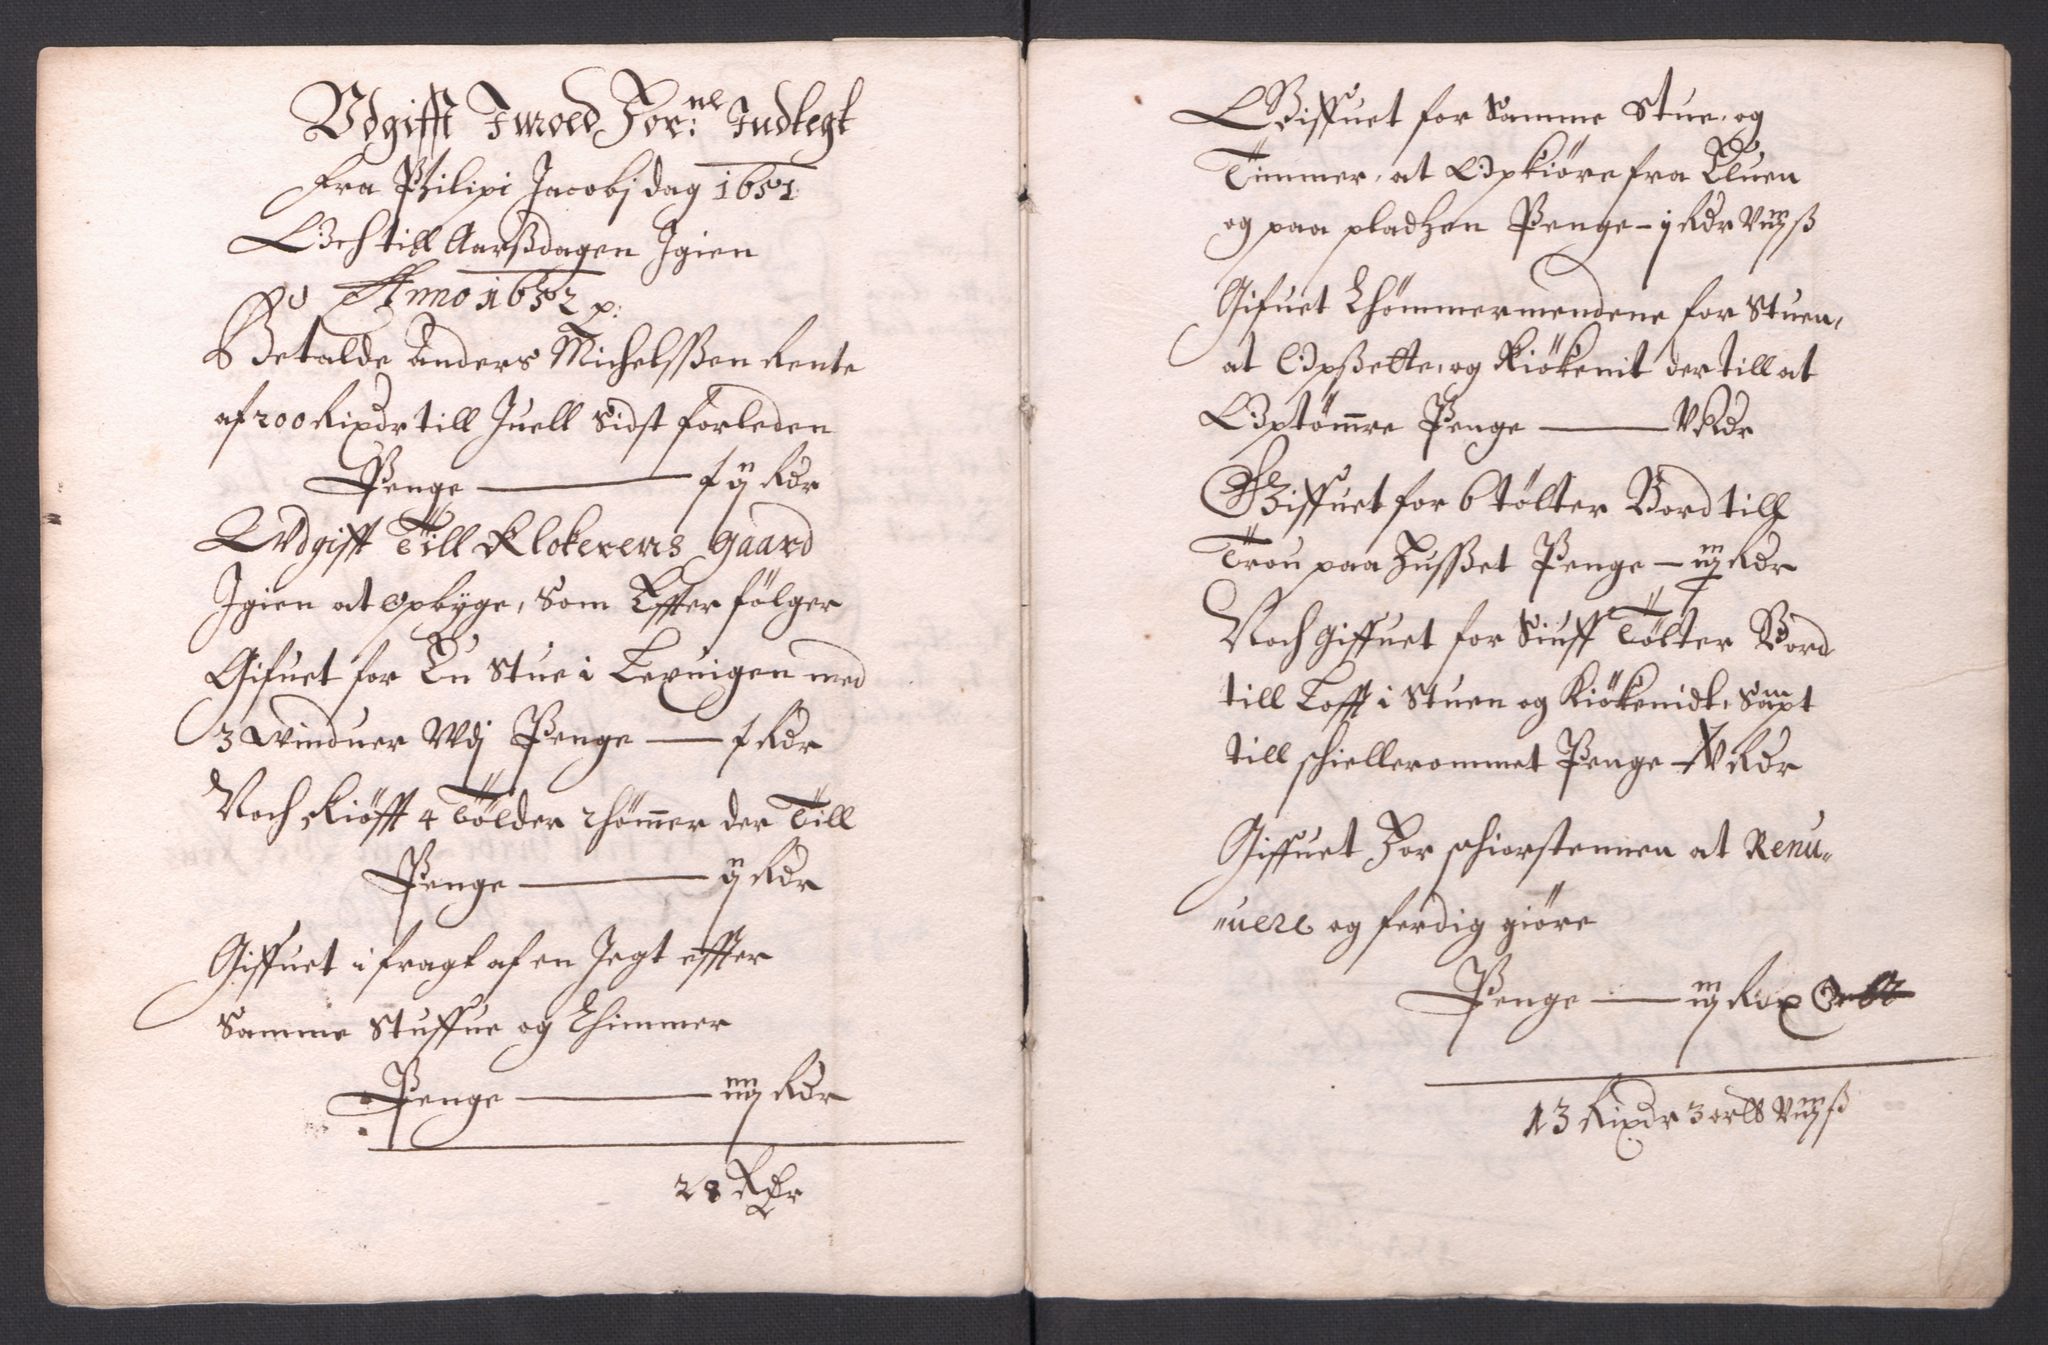 Vdgifft Imoed For:ne Indlegt
Fra Philipi Jacobj dag 1651
Och till Aarßdagen Igien
Anno 1652 p:
Betalde Anders Michelsßen Rente
af 200 Rixdr till Juell Sidst forleden
Penge — xij Rdr
Vdgifft Till Klokerens gaard
Igien at opbyge, Som Effter følger
Gifuet for En Stue i Lexuigen med
3 Vinduer Vdj Penge — x Rdr
Noch Kiøfft 4 Tølder thømer der Till
Penge — ij Rdr
Giffuet i fragt af en Jegt effter
Samme Stuffue og Thimmer
Penge — iiij Rdr
28 RDr
Giffuet for Samme Stue, og
Timmer, at Opkiøre fra Eluen
og paa pladzen Penge — j Rdr Viij ß
Gifuet Thømmermendene for Stuen,
at Opßette, og Kiøkenit der till at
Optømre Penge — V Rdr
Giffuet for 6 tølter Bord till
Trou paa Husßet Penge — iij Rdr
Noch giffuet for Siuff Tølter Bord
till Lofft i Stuen og Kiøkenidt, Sampt
till schiellerommet Penge — Rdr
Giffuet For schiorstennen at Renu„
„uere og ferdig giøre
Penge — iij
13 Rixdr 3 ortt Viij ß